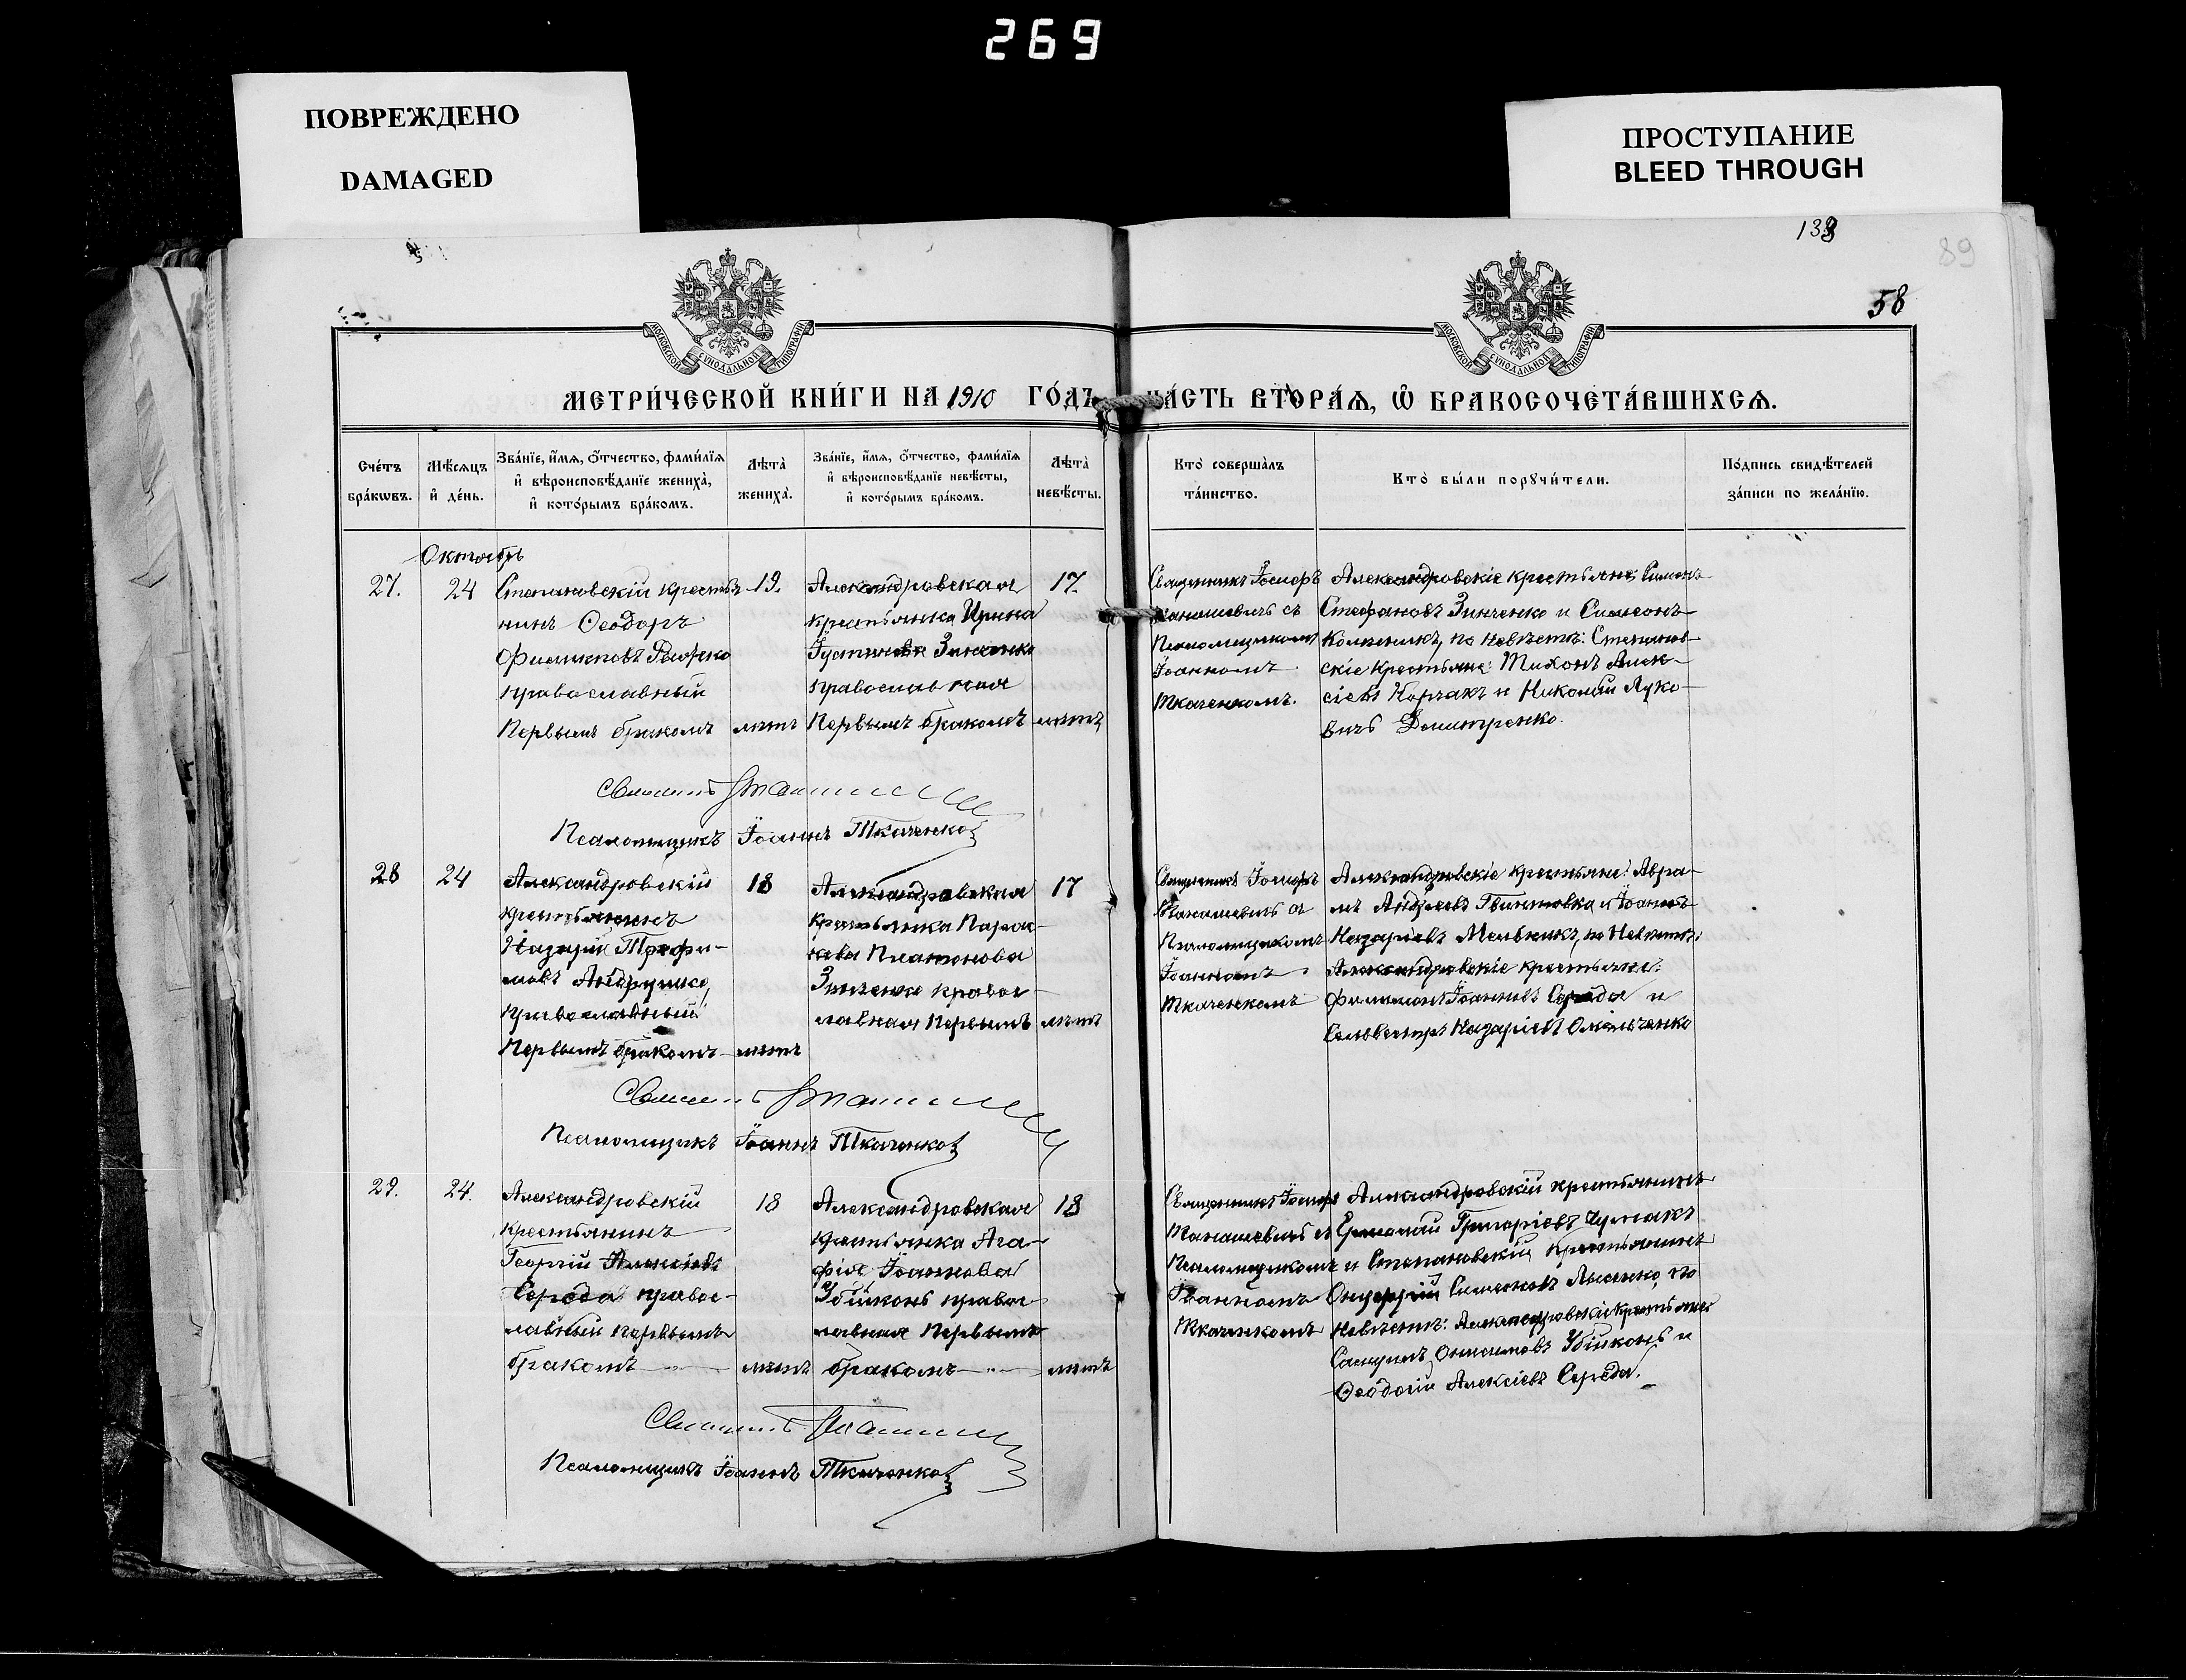 269
ПОВРЕЖДЕНО
DAMAGED
ПРОСТУПАНИЕ
BLEED THROUGH
133
89
58
МОСКОВСКОЙ СѴНОДАЛЬНОЙ ТИПОГРАФІИ
МОСКОВСКОЙ СѴНОДАЛЬНОЙ ТИПОГРАФІИ
МЕТРИ́ЧЕСКОЙ КНИ́ГИ НА 1910 ГО́ДЪ, ЧА́СТЬ ВТОРА́Ѧ, Ѽ БРАКОСОЧЕТА́ВШИХСѦ.
Сче́тъ бра́кѡвъ.
Мѣ́сяцъ и҆ де́нь.
Зва́нїе, и҆́мѧ, ѻ҆́тчество, фами́лїѧ
и҆ вѣроисповѣ́данїе жениха̀,
и҆ кото́рымъ бра́комъ.
Лѣта̀ жениха̀.
Зва́нїе, и҆́мѧ, ѻ҆́тчество, фами́лїѧ
и҆ вѣроисповѣ́данїе невѣ́сты,
и҆ кото́рымъ бра́комъ.
Лѣта̀ невѣ́сты.
Кто̀ соверша̀лъ та́инство.
Кто̀ бы́ли порꙋчи́тели.
По́дпись свидѣ́телей
за́писи по жела́нїю.
Октябрь
27.
24
Степановскій крестья-
нинъ Ѳеодоръ
Филипповъ
православный
Первымъ бракомъ
19.
лѣтъ
Александровская
крестьянка Ирина
Іустинова Зинченко
православная
Первымъ бракомъ
17.
лѣтъ
Священникъ Іосифъ
съ
Псаломщикомъ
Іоанномъ
Ткаченкомъ.
Александровскіе крестьяне: Симонъ
Стефановъ Зинченко и Симеонъ
по невѣстѣ: Степанов-
скіе крестьяне: Тихонъ Алек-
сіевъ Корчакъ и Николай Луко-
вичъ Домитренко.
Псаломщикъ Іоаннъ Ткаченко
28
24
Александровскій
крестьянинъ
Назарій Трофи-
мовъ Андрущко,
православный
Первымъ бракомъ
18
лѣтъ
Александровская
крестьянка Парас-
кева Платонова
Зинченко правос-
лавная Первымъ
17
лѣтъ
Священникъ Іосифъ
Псаломщикомъ
Іоанномъ
Ткаченкомъ
Александровскіе крестьяне: Авра-
мъ Андреевъ и Іоаннъ
Назаріевъ Мельникъ, по Невѣстѣ:
Александровскіе крестьяне:
Филимонъ Іоанновъ Середа и
Сельвестръ Назаріевъ Омельченко
Псаломщикъ Іоаннъ Ткаченко
29.
24.
Александровскій
крестьянинъ
Георгій Алексіевъ
Середа правос-
лавный первымъ
бракомъ
18
лѣтъ
Александровская
крестьянка Ага-
фія Іоаннова
Убійконь правос-
лавная Первымъ
бракомъ
18
лѣтъ
Священникъ Іосифъ
Псаломщикомъ
Іоанномъ
Ткаченкомъ
Александровскій крестьянинъ
Ермолай Григоріевъ Чумакъ
и Степановскій крестьянинъ
Онуфрій Симоновъ Лысенко, по
Невѣстѣ: Александровскіе крестьяне
Самуилъ Онисимовъ Убійконь и
Ѳеодосій Алексіевъ Середа.
Псаломщикъ Іоаннъ Ткаченко